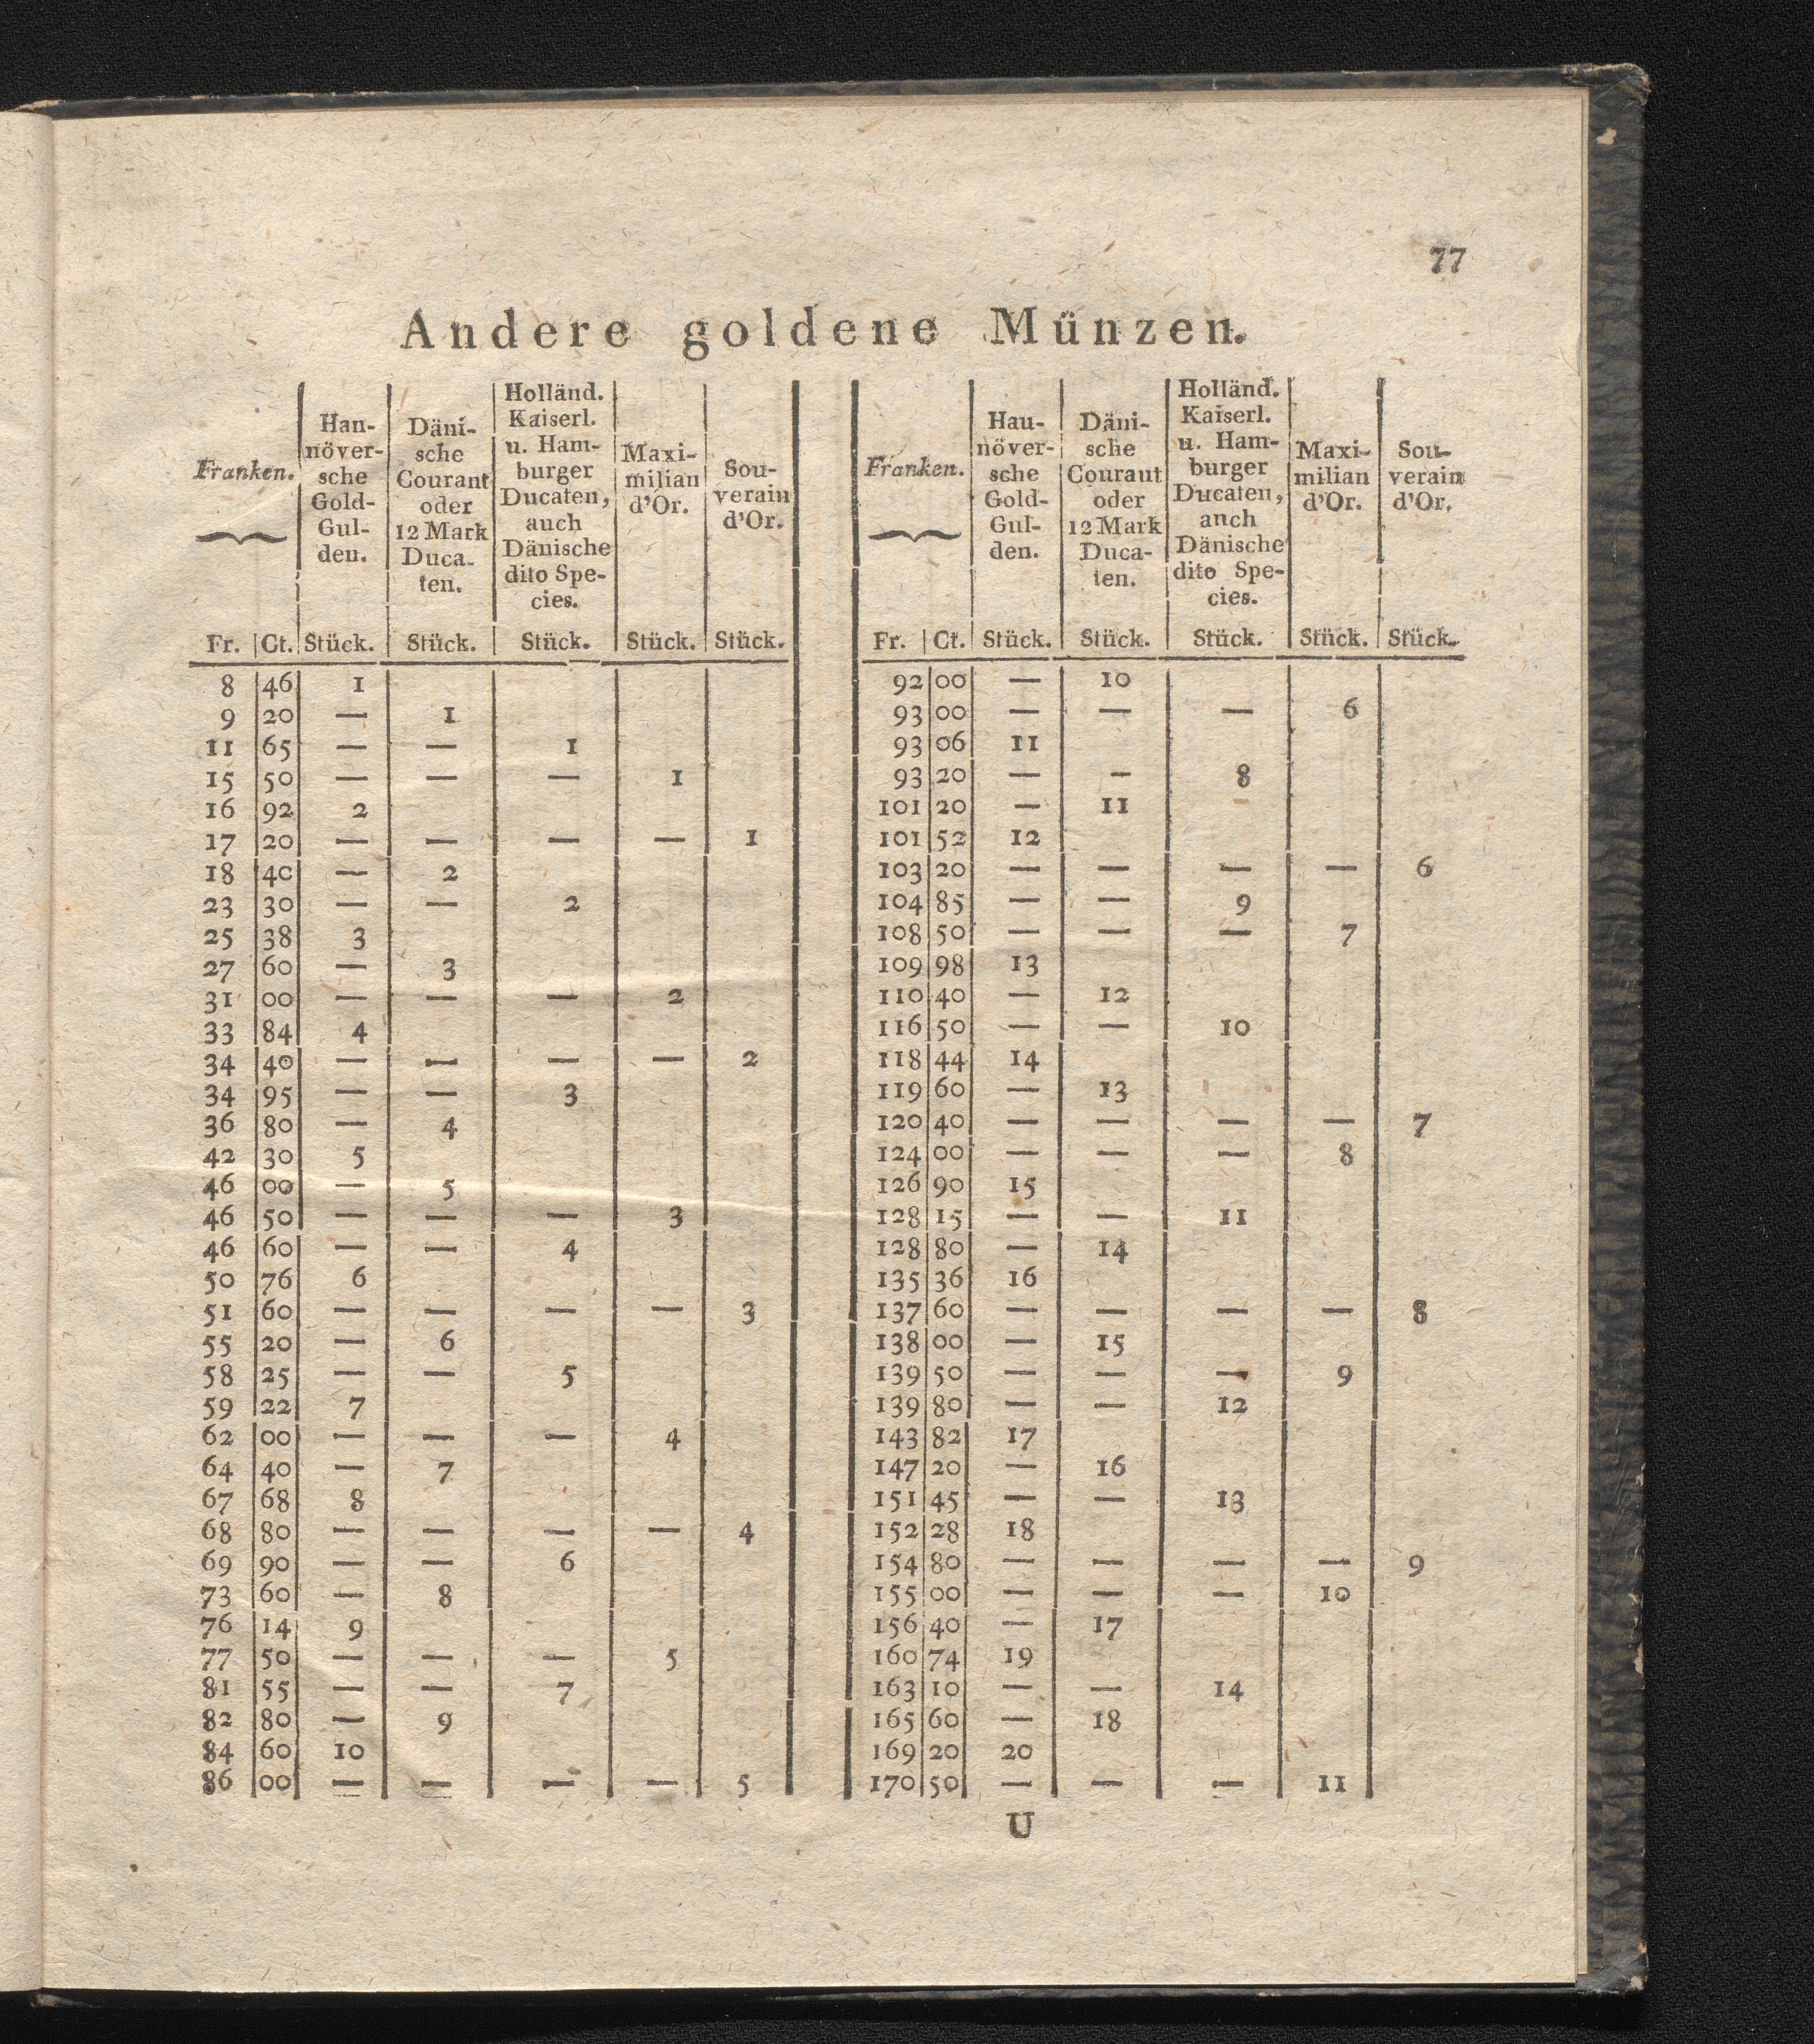 77
Andere goldene Münzen.
Franken. Han-növer-sche Gold-Gul-den. Däni-sche Courant oder 12 Mark Duca-ten. Holländ. Kaiserl. u. Ham-burger Ducaten, auch Dänische dito Spe-cies. Maxi-milian d'Or. Sou-verain d'Or.
Fr. Ct. Stück. Stück. Stück. Stück. Stück.
8 46 1
9 20 — 1
11 65 — — 1
15 50 — — — 1
16 92 2
17 20 — — — — 1
18 40 — 2
23 30 — — 2
25 38 3
27 60 — 3
31 00 — — — 2
33 84 4
34 40 — — — — 2
34 95 — — 3
36 80 — 4
42 30 5
46 00 — 5
46 50 — — — 3
46 60 — — 4
50 76 6
51 60 — — — — 3
55 20 — 6
58 25 — — 5
59 22 7
62 00 — — — 4
64 40 — 7
67 68 8
68 80 — — — — 4
69 90 — — 6
73 60 — 8
76 14 9
77 50 — — — 5
81 55 — — 7
82 80 — 9
84 60 10
86 00 — — — — 5
Franken. Hau-növer-sche Gold-Gul-den. Däni-sche Couraut oder 12 Mark Duca-ten. Holländ. Kaiserl. u. Ham-burger Ducaten, anch Dänische dito Spe-cies. Maxi-milian d'Or. Sou-verain d'Or.
Fr. Ct. Stück. Stück. Stück. Stück. Stück.
92 00 — 10
93 00 — — — 6
93 06 11
93 20 — — 8
101 20 — 11
101 52 12
103 20 — — — — 6
104 85 — — 9
108 50 — — — 7
109 98 13
110 40 — 12
116 50 — — 10
118 44 14
119 60 — 13
120 40 — — — — 7
124 00 — — — 8
126 90 15
128 15 — — 11
128 80 — 14
135 36 16
137 60 — — — — 8
138 00 — 15
139 50 — — — 9
139 80 — — 12
143 82 17
147 20 — 16
151 45 — — 13
152 28 18
154 80 — — — — 9
155 00 — — — 10
156 40 — 17
160 74 19
163 10 — — 14
165 60 — 18
169 20 20
170 50 — — — 11
U